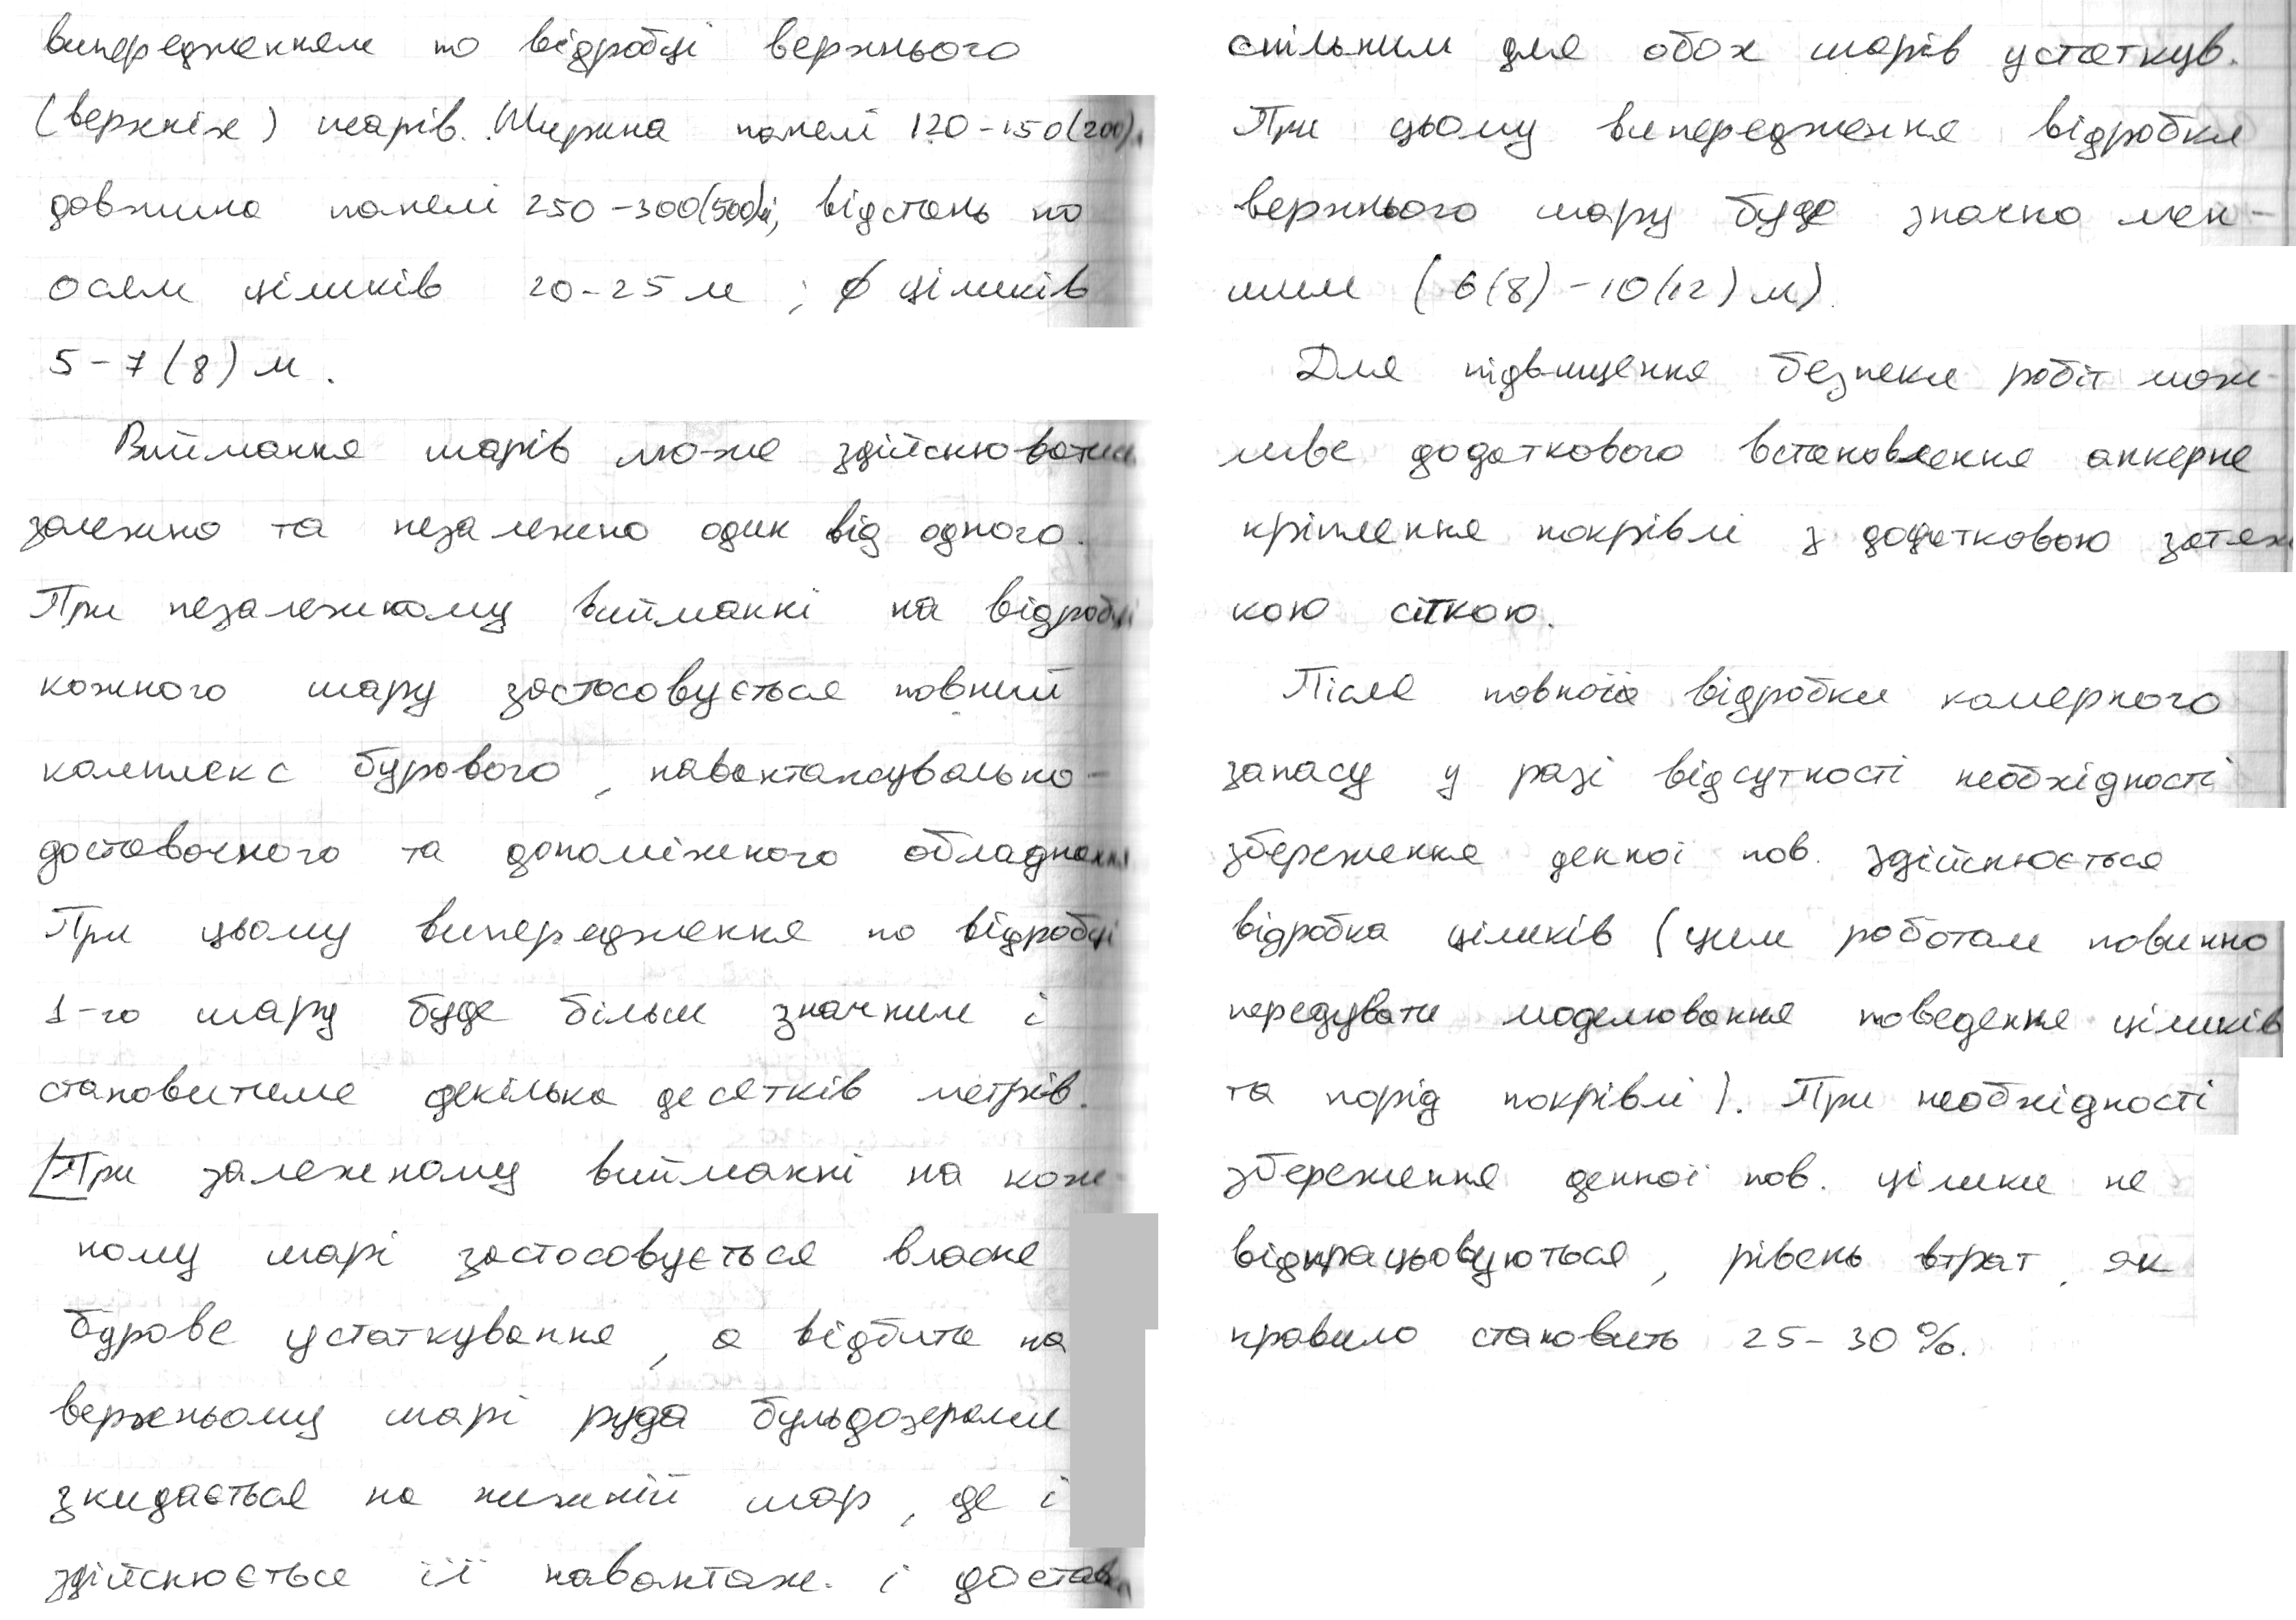 випередженням по відробці верхнього
(верхніх) шарів. Ширина панелі 120-150(200),
довжина панелі 250-300(500)м, відстань по
осям ціликів 20-25 м; ϕ ціликів
5-7(8) м.
Виймання шарів може здійснюватись
залежно та незалежно один від одного.
При незалежному вийманні на відробці
кожного шару застосовується повний
комплекс бурового, навантажувально-
доставочного та допоміжного обладнання
При цьому випередження по відробці
1-го шару буде більш значним і
становитиме декілька десятків метрів.
При залежному вийманні на кож-
ному шарі застосовується власне
бурове устаткування, а відбита на
верхньому шарі руда бульдозерами
зкидається на нижній шар, де і
здійснюється її навантаж. і доставка
спільним для обох шарів устаткув.
При цьому випередження відробки
верхнього шару буде значно мен-
шим (6(8)-10(12) м).
Для підвищення безпеки робіт мож-
ливе додаткового встановлення анкерне
кріплення покрівлі з додатковою затяж
кою сіткою.
Після повної відробки камерного
запасу у разі відсутності необхідності
збереження денної пов. здійснюється
відробка ціликів (цим роботам повинно
передувати моделювання поведення ціликів
та порід покрівлі). При необхідності
збереження денної пов. цілики не
відпрацьовуються, рівень втрат, як
правило становить 25-30%.